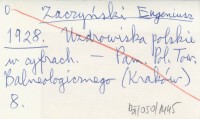 Zaczyński Eugeniusz
1928. Uzdrowiska polskie
w cyfrach. — Pam. Pol. Tow.
Balneologicznego (Kraków)
8.